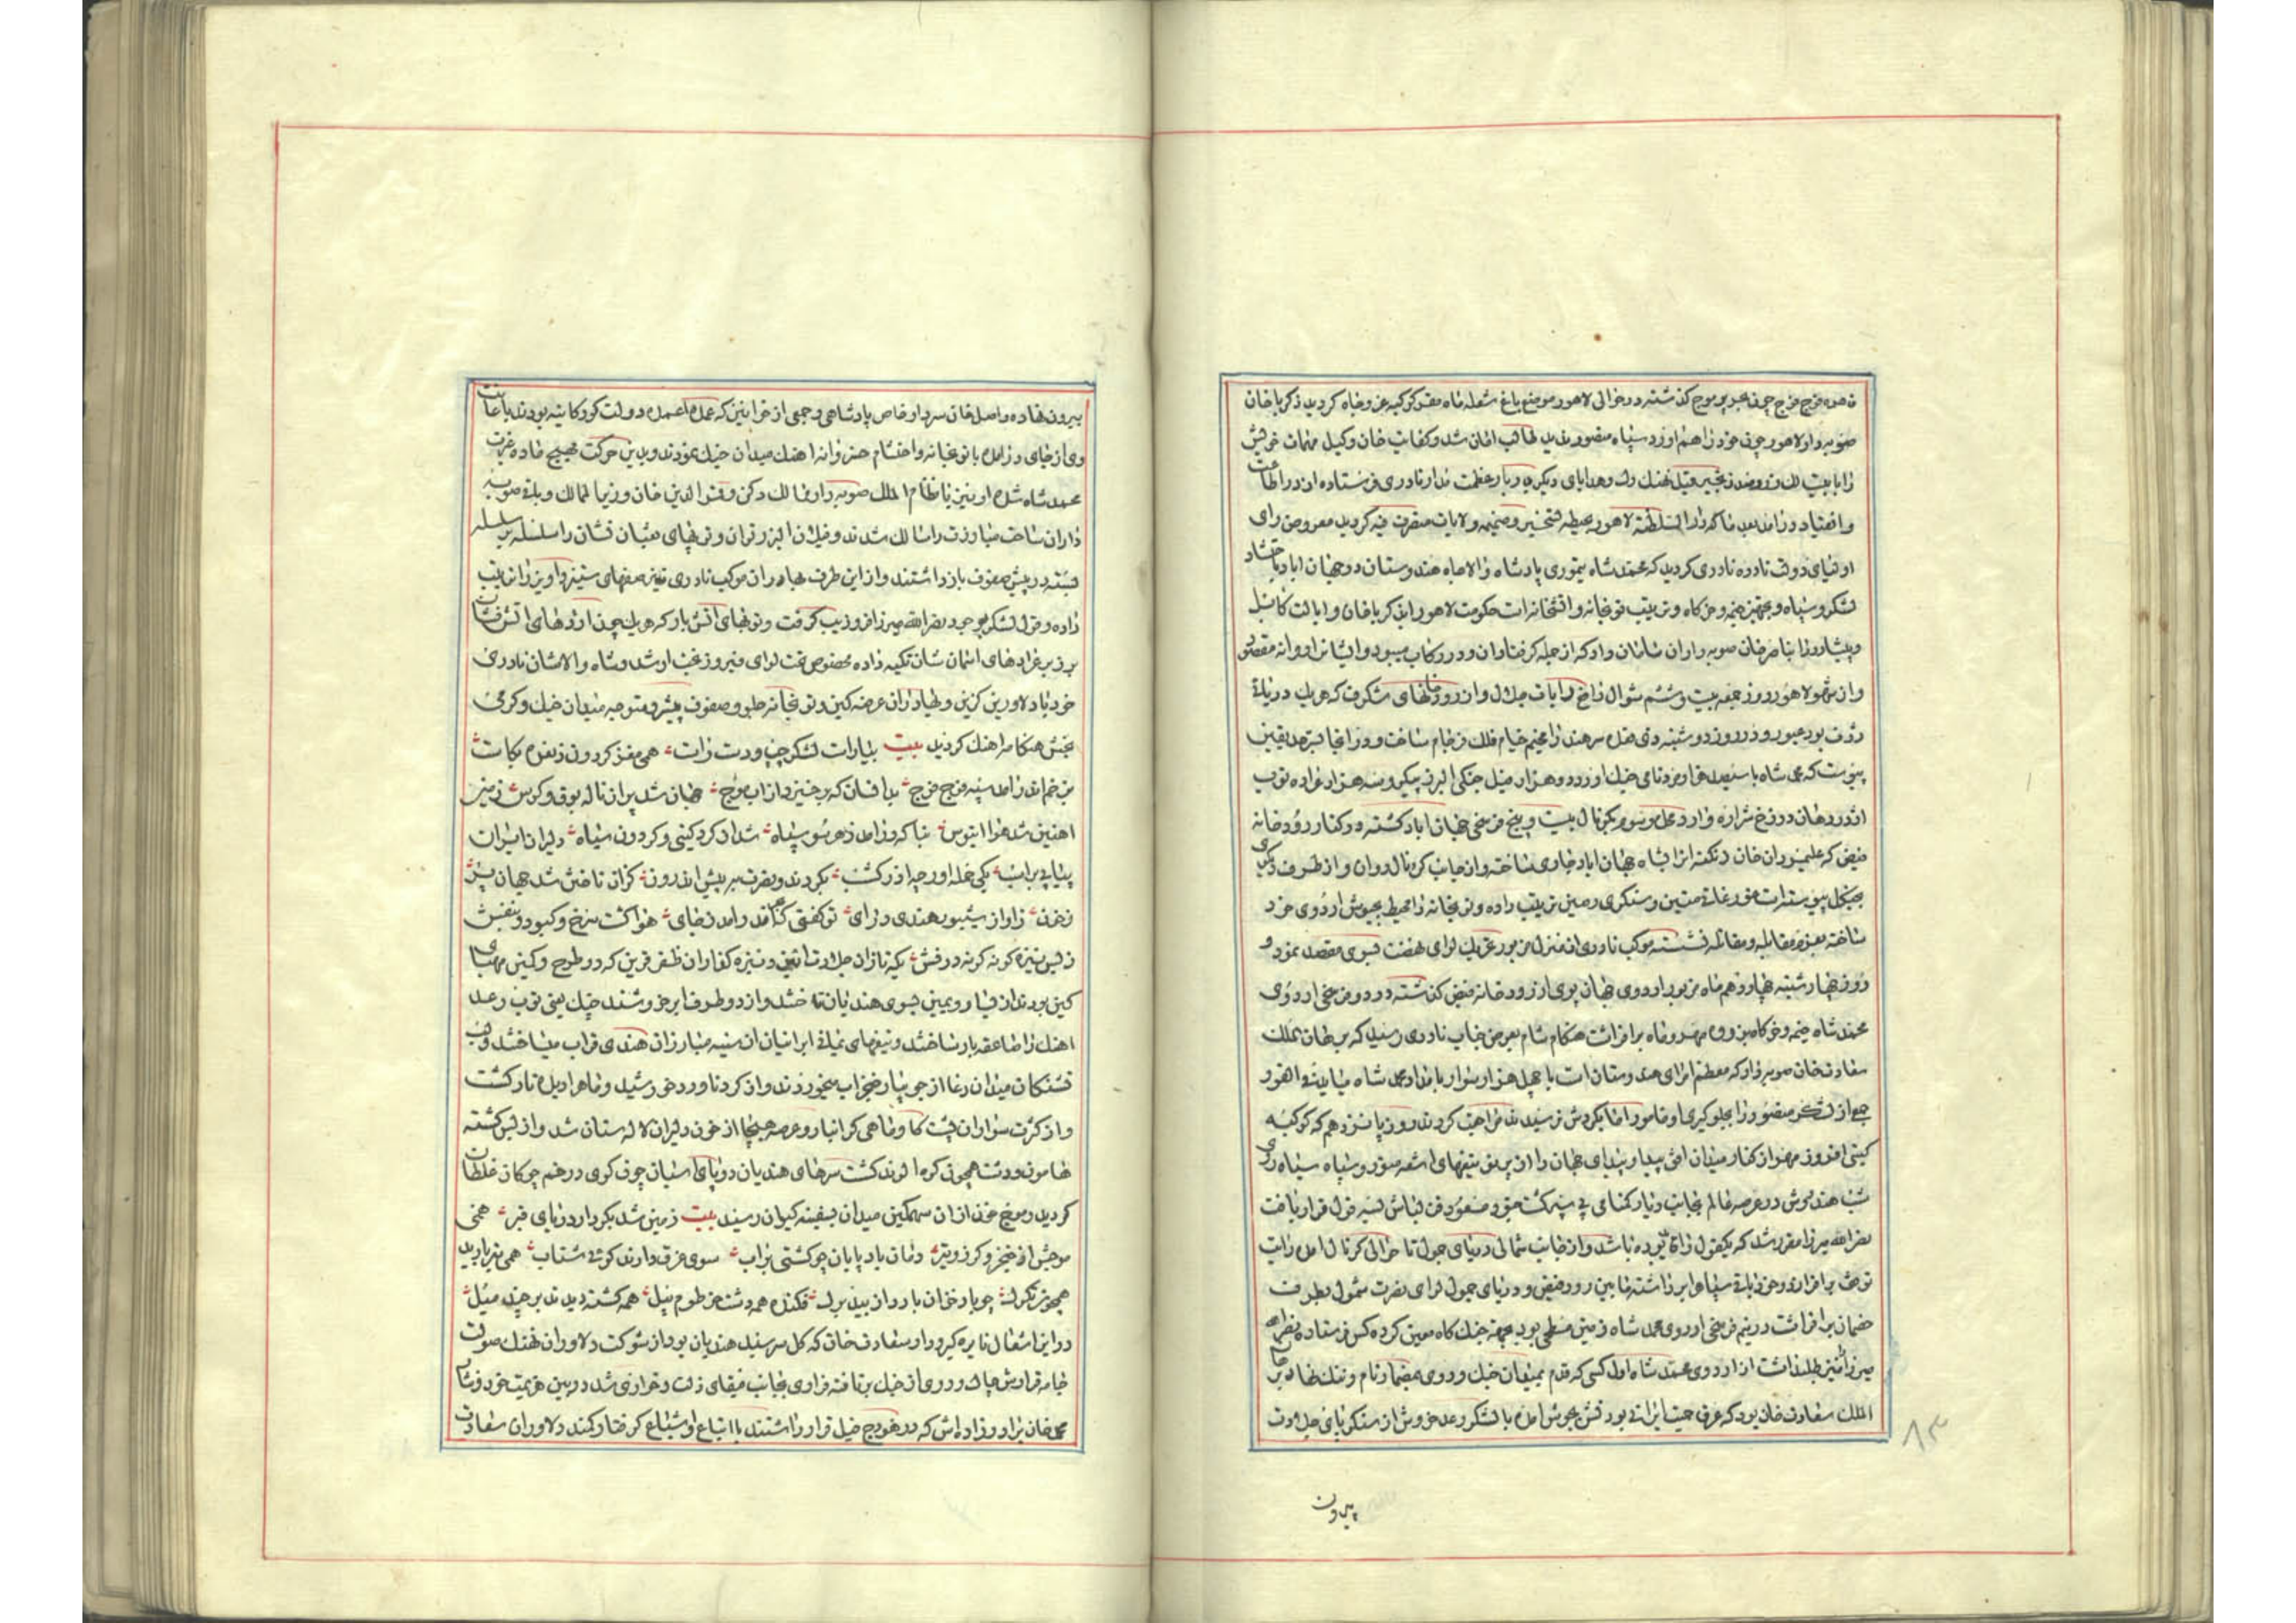 قاهره فوج فوج چون بحر پر موج گذشته در حوالی لاهور موضع باغ شعله ماه مقر کوکبه عز و جاه گردید ذکریا خان
صوبه دار لاهور چون خود را هم آورد سپاه منصور ندید طالب امان شد و کفایت خان وکیل مهمات خویش
را با بیست لک و زنجیر فیل و هدایای دیگر بدربار عظمت مدار نادری فرستاده از در اطاعت
و انقیاد درآمد بعد ما که دار السلطنة لاهور بحیطه تسخیر و ضمیمه ولایات متصرف فیه گردید معروض رای
اولیای دولت نادره نادری گردید که محمد شاه تیموری پادشاه والاجاه هندوستان در جهان آباد باحتشاد
لشکر و سپاه و تجهیز خیمه و خرگاه و ترتیب توپخانه و حکومت لاهور را بذکریا خان و ایالت کابل
و پیشاور را بناصر خان صوبه دار آن سامان داد که از جمله گرفتاران و در رکاب میبود و ایشانرا روانه مقصد
و از شهر لاهور روز جمعه بیست و ششم شوال رایات جلال و از رودخانهای شگرف که هر یک دریای
ژرف بود عبور و در روز دوشنبه ذی قعده سرهند را مخیم خیام فلک فرجام ساخت و در آنجا بسرحد یقین
پیوست که محمد شاه با سیصد هزار مرد نامی جنگ آور و دو هزار فیل جنگی البرز پیکر و سه هزار عراده توپ
اژدر دهان دوزخ شراره وارد محل موسوم بکرنال بیست و پنج فرسخی جهان آباد گشته در کنار رودخانه
فیض که علیمردان خان زنگنه آنرا بشاه جهان آباد جاری ساخته و از جانب کرنال روان و از طرف دیگری
بجنگل پیوسته است مورغات متین و سنگری رصین ترتیب داده و توپخانه را محیط بجیوش اردوی خود
ساخته بعزم مقابله و مقاتله نشسته موکب نادری از منزل مزبور تحریک لوای نهضت بسوی مقصد نمود و
روز چهارشنبه چهاردهم ماه مزبور اردوی جهان پوی از رودخانه فیض گذشته در دو فرسخی اردوی
محمد شاه خیمه و خرگاه بذروه مهر و ماه برافراشت هنگام شام بعرض جناب نادری رسید که برهان الملک
سعادت خان صوبه دار که معظم امرای هندوستان است با چهل هزار سوار بامداد محمد شاه میاید فی الفور
جمعی از لشکر منصور را بجلوگیری او مامور اما بگردش نرسیدند مراجعت کردند روز پانزدهم که کوکبه
گیتی افروز مهر از کنار میدان افق پیدا و بیدای جهان را از بریق تیغهای اشعه منور و سپاه سیاه روی
شب هندوپوش در عرصه عالم بجانب دیار گمنامی پی سپر گشت جنود مسعود قرار یافت
نصر الله میرزا مقرر شد که یکقول را قایم بوده باشد و از جانب شمالی دریای جون تا حوالی کرنال آمده رایت
توقف برافرازد و خود باره سپاه برداشته مابین رود فیض و دریای جون لوای نصرت شمول بطرف
خصمان برافراشت در نیم فرسخی اردوی محمد شاه زمین مسطحی بود بجهة جنگ گاه معین کرده کس فرستاده نصر الله
میرزا را نیز طلب داشت از اردوی محمد شاه اول کسی که قدم بمیدان جنگ و روی بمضمار نام و ننگ نهاد برهان
الملک سعادت خان بود که عرق حمیت ایرانی بود قش بجوش آمده با لشکر رعد خروش از سنگر پای جلادت
۸۳
بیرون
بیرون نهاده واصل خان سردار خاص پادشاهی و جمعی از خوانین که عمده اعمده دولت گورکانیه بودند باعانت
وی از جای درآمده با توپخانه و احتشام خسروانه آهنگ میدان جنگ نمودند و بدین حرکت مهیج ماده غیرت
محمد شاه شده او نیز با نظام الملک صوبه دار ممالک دکن و قمر الدین خان وزیر الممالک و باقی صوبه
داران ساحت مبارزت را سالک شدند و فیلان البرز توان و توپهای ثعبان نشان را سلسله بر سلسله
بسته در پیش صفوف بازداشتند و از این طرف بهادران موکب نادری نیز صفهای ستیز و آویز را ترتیب
داده و قول لشکر بوجود نصر الله میرزا فر و زیب گرفت و توپهای آتشبار که هر یک چون اژدهای آتش فشان
بر زبر عرادهای آسمان شان تکیه داده مخصوص تحت لوای فیروز نجف ارشد و شاه والاشان نادری
خود با دلاورین گزین و بهادران عرصه کین و توپخانه جلو و صفوف پیشرو متوجه میدان جنگ و گرمی
بخش هنگامه آهنگ گردید بیت بیارات لشکر چپ و دست راست همی مغز گردون ز نعره بکاست
بترخم اندر آمد سپه فوج فوج بدانسان که برخیزد از آب موج جهان شد پر از ناله بوق و کوس زمین
آهنین شد هوا آبنوس بناگه درآمد ز هر سو سپاه شد از گرد گیتی و گردون سیاه دلیران ایران
پیاپی برآیند یکی حمله آور چو آذرگشسب بکردند و نصرت بر پیش اندرون گران تاختن شد جهان پر
ز خون ز آواز شیپور هندی درای تو گفتی که آمد زمین را ز جای هوا گشت سرخ و کبود و بنفش
ز بس نیزه گونه گونه درفش یکه تازان جلادت آیین و نیزه گذاران ظفر قرین که در طرح و کمین مهیای
کین بودند از یسار و یمین بسوی هندیان تاختند و از دو طرف ابر خروشند جنگ یعنی توپ رعد
آهنگ را صاعقه بار ساختند و تیغهای یمانی ایرانیان از سینه مبارزان هندی قراب میساختند و لب
تشنگان میدان وغا از جویبار خنجر آب میخوردند و از گرد ناورد خورشید و ماه را دیده تار گشت
و از کثرت سواران پشت گاو و ماهی گرانبار و عرصه هیجا از خون دلیران لاله ستان شد و از بس کشته
هامون و دشت همچون کوه الوند گشت سرهای هندیان در پای اسبان چون گوی در خم چوگان غلطان
گردید و موج خون از آن سهمگین میدان بسفینه کیوان رسید بیت زمین شد بکردار دریای قیر همی
موجش از خنجر و گرز و تیر دمان باد پایان چو کشتی بر آب سوی غرق دارند گوئی شتاب همی تیر بارید
همچون تگرگ چو باد خزان بارد از بید برگ فکنده همه دشت خرطوم پیل همه کشته دیدند بر چند میل
در این اشتعال نایره گیر و دار سعادت خان که گل سر سبد هندیان بود از شوکت دلاوران نهنگ صولت
جامه قرارش چاک و روی از جنگ برتافته فراری بجانب فیفای ذلت و خواری شد و بین هزیمت خود و نثار
محمد خان برادرزاده اش که در هودج فیل قرار داشتند با اتباع و اشیاع گرفتار کمند دلاوران سعادت